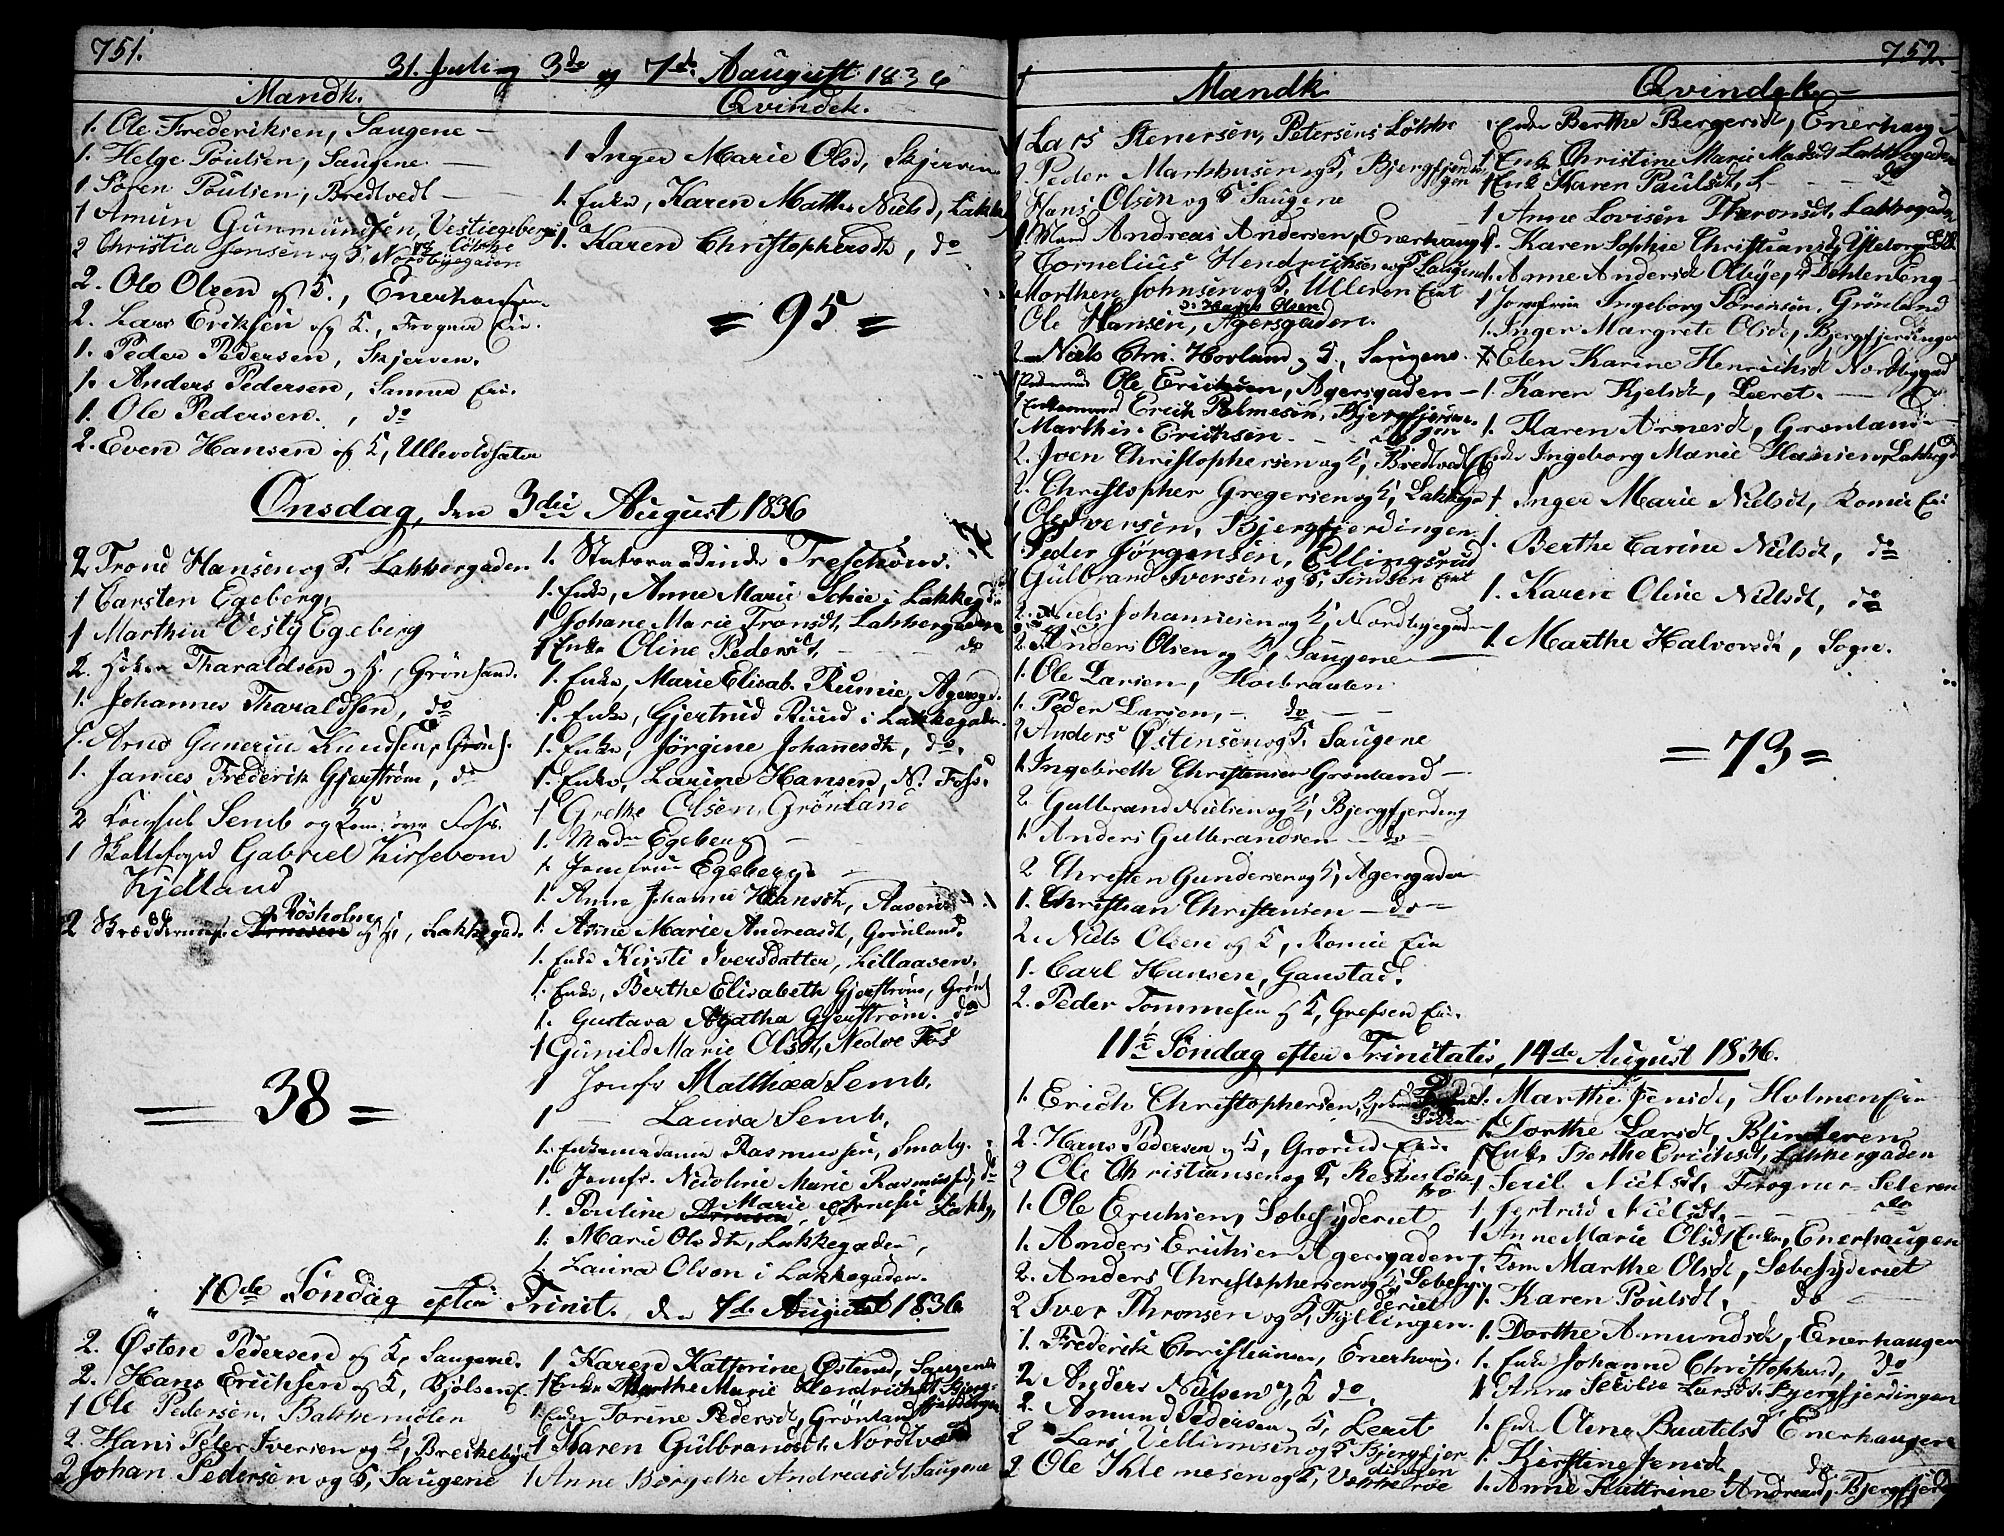 751.
31. Juli og 3de og 7de August 1836
Mandk.
1. Ole Frederiksen, Saugene
1. Helge Poulsen, Saugene
1 Søren Poulsen, Bredtvedt
1 Amun Gunmundsen,
2 Christia Jensen og K, Nordbyegaden
2. Ole Olsen og K., Enerhaugen
2. Lars Eriksen og K., Frogner Eie.
1. Peder Pedersen, Skjerven.
1. Anders Pedersen, Sanner Eie.
1. Ole Pedersen, do
2. Even Hansen og K, Ullevoldsæter
Qvindek.
1 Inger Marie Olsd, Skjerven
1. Enke, Karen Mathe Nielsd, Lakkeg
1. Karen Christophersdt, do
= 95 =
Onsdag, den 3die August 1836
2 Trond Hansen og K. Lakkergaden
1 Carsten Egeberg,
1 Marthin Vesty Egeberg
2. Tharaldsen og K., Grønland.
1. Johannes Tharaldsen, do
1. Arne Gunerius Knudsen, Grønl.
1. James Frederik Gjerstrøm, do
2 Konsul Semb og Kone, øvre Foss.
1 Skattefoged Gabriel Kirsebom
Kjelland
2 Skræddermest. Røsholm og K, Lakkegad.
= 38 =
1. Statsraadinde Treschows.
1. Enke, Anne Marie Schie i Lakkegd.
1 Johane Marie Tronsdt, Lakkergaden
1 Enke Oline Pedersdt, do
1. Enke, Marie Elisab. Rumie, Agersgd.
1. Enke, Gjertrud Ruud i Lakkegaden.
1. Enke, Jørgine Johannesdt, do.
1. Enke, Larine Hansen, N. Foss.
1 Grethe Olsen, Grønland
1. Madm Egeberg
1. Jomfrue Egeberg
1. Anne Johanne Hansdt, Aasen
1. Anne Marie Andreasdt, Grønland.
1. Enke Kirsti Iversdatter, Lillaasen.
1. Enke, Berthe Elisabeth Gjerstrøm, Grønl
1. Gustava Agatha Gjerstrøm. do
1 Gunild Marie Olsdt, Nedre Fos
1 Jomfr Matthea Semb,
1 — Laura Semb,
1. Enkemadame Rasmussen, Smalg.
1. Jomfr. Nicoline Marie Rasmussen, do
1. Pauline Marie Arnesen Lakkeg,
1. Marie Olsdtr, Lakkegaden,
1. Laura Olsen i Lakkegaden.
10de Søndag efter Trinit. den 7de August 1836
2. Østen Pedersen og K, Saugene.
2. Hans Erichsen og K, Kjølsen E.
1 Ole Pedersen, Bakkemølen
2. Hans Peter Iversen og K, Breckebye
2 Johan Pedersen og K, Saugene
1 Karen Kathrine Østensd, Saugene
1 Enke Marthe Marie Hendrichsdt Bjergfjerdingen
1. Enke Torine Pedersdt, Grønland
1 Karen Gulbrandsdt, Nordtvedt
1 Anne Børgethe Andreasdt, Saugene
752.
Mandk
1 Lars Stenersen, Petersens Løkke
2. Peder Markhusen og K, Bjergfjerdingen
2 Hans Olsen og K Saugene
1. Mand Andreas Andersen, Enerhaugen
2 Cornelius Hendrichsen og K Saugene
2 Morthen Johnsen og K, Ulleren Eiet
Ole Hansen, Agersgaden.
2 Niels Chri. Hovland og K., Saugene
Pedersmd Ole Erichsen, Agersgaden
1 Enkemand Erich Palmesen, Bjergfjerdingen
1 Marthis Erichsen — do
2. Iven Christophersen og K, Bredtvedt
2. Christopher Gregersen og K, Lakkega
1 Ole Iversen, Bjergfjerdingen
1. Peder Jørgensen, Ellingsrud
2 Gulbrand Iversen og K, Sindsen Eiet
2. Niels Johannesen og K, Nordbyegaden
2. Anders Olsen og K, Saugene
1. Ole Larsen, Hoebraaten
1. Peder Larsen, — do
2 Anders Østensen og K. Saugene
1 Ingebreth Christensen Grønland
2 Gulbrand Nielsen og K, Bjergfjerding
1. Anders Gulbrandsen — do
2 Christen Gundersen og K, Agersgaden
1. Christian Christensen — do
2. Niels Olsen og K, Romie Eie
1. Carl Hansen, Gaustad.
2. Peder Tommesen og K, Grefsen Eie.
Qvindek
1 Enke Berthe Bergersdt, Enerhaug
1 Enke Christine Marie Madsdt Lakkegaden
1 Enke Karen Paulsdt, do
1 Anne Lovisen Thronsdt, Lakkegade
1. Karen Sophie Christiansdt,
1. Anne Andersdt Olbye, Dehleneng
1 Jomfrue Ingeborg Sørensen, Grønland
1. Inger Margrete Olsdt, Bjergfjerdingen
1. Elen Karine Henrichsdt Nordbygad
1. Karen Kjelsdt, Leeret.
1. Karen Arnesdt, Grønland
Enke Ingeborg Marie Hansen, Lakkegd
1. Inger Marie Nielsdt, Romie Eie
1. Berthe Carine Nielsdt, do
1. Karen Oline Nielsdt, do
1. Marthe Halvorsdt, Sogn.
= 73 =
11te Søndag efter Trinitatis, 14de August 1836.
1. Erich Christophersen,
2. Hans Pedersen og K, Grorud Eie.
2 Ole Christiansen og K,
1. Ole Erichsen, Sæbesyderiet
1. Anders Erichsen Agersgaden
2. Anders Christophersen og K, Sæbesyderiet
2 Iver Thronsen og K, Fyllingen
1. Frederik Christiansen, Enerhaug.
2 Anders Nielsen og K do
2. Amund Pedersen og K, Leret
2 Lars Villumsen og K Bjergfjerdingen
2 Ole Khlemesen og K, Vækkerøe
1. Marthe Jensdt, Holmen Eie
1. Dorthe Larsdt, Blinderen
1 Enke Berthe Erichsdt, Lakkergaden
1 Seril Nielsdt, Frogner Seteren
1 Jertrud Nielsdt, do
1 Anne Marie Olsdt Enke, Enerhaugen
1. Kone Marthe Olsdt, Sæbesyderiet
1. Karen Poulsdt, do
1. Dorthe Amundsdt, Enerhaugen
1. Enke Johanne Christophersd, do
1 Anne Secilie Larsdt, Bjergfjerdingen
1. Enke Oline Enerhaugen
1. Kirstine Jensdt do
1. Anne Kattrine Andreasd, Bjergfjerd